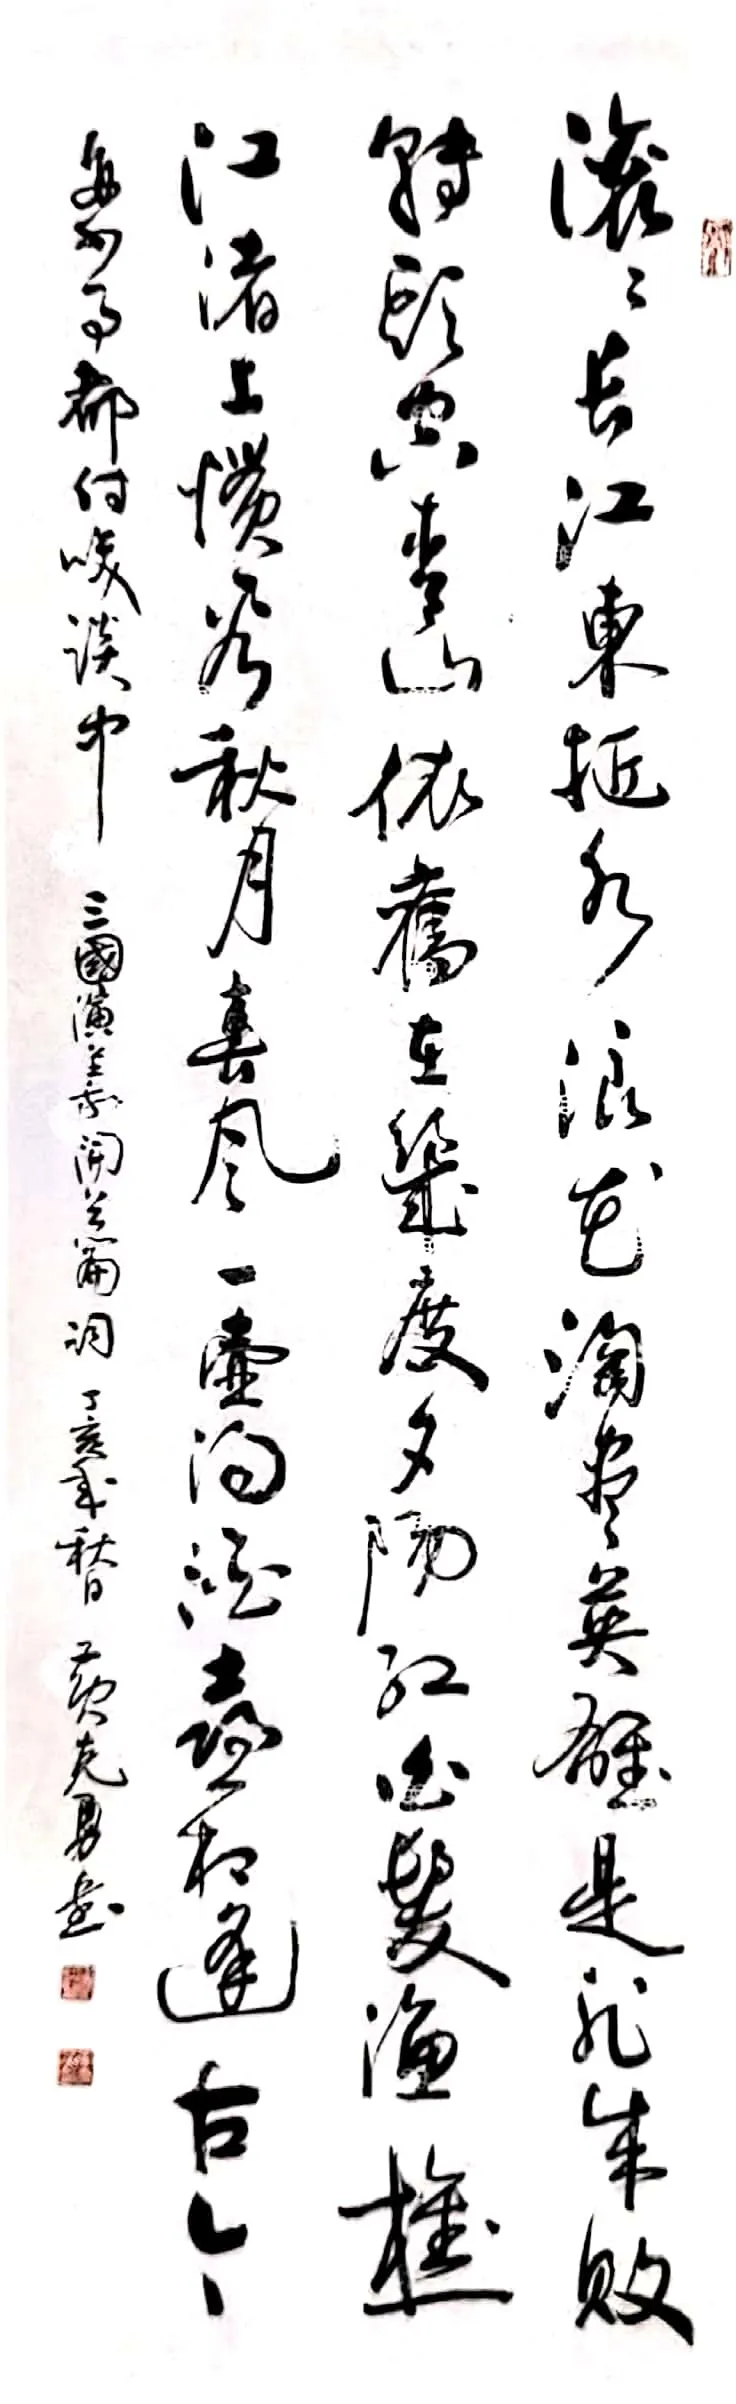 滚〻長江東逝水浪花淘盡英雄是非成敗
轉頭空青山依舊在幾度夕陽紅白髮漁樵
江渚上慣看秋月春風一壺濁酒喜相逢古今
多少事都付咲談中 三國演義開篇詞 丁亥年秋日 黄克勇書